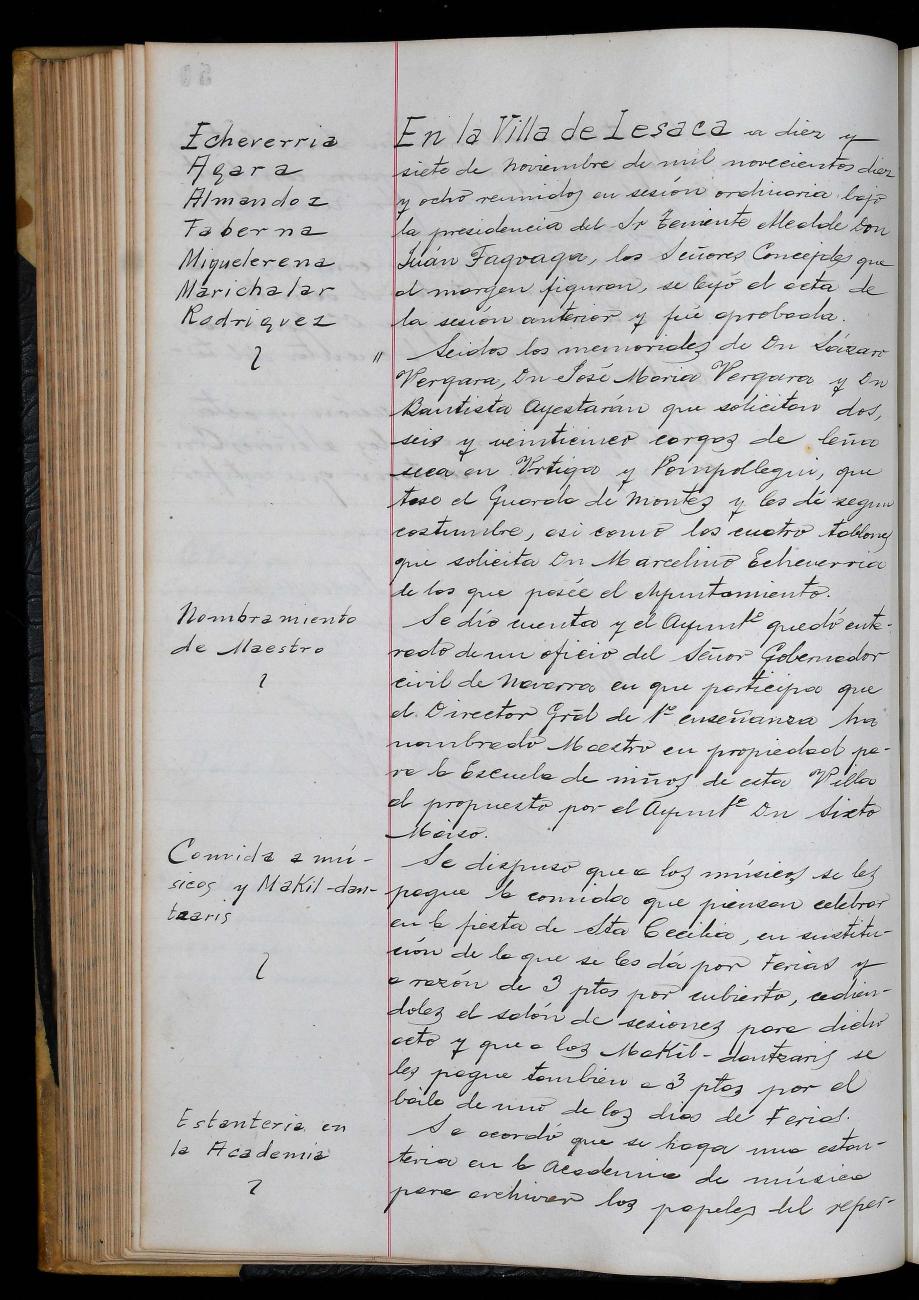 Echeverria
Agara
Almandoz
Taberna
Miquelerena
Marichalar
Rodriguez
En la Villa de Lesaca a diez y
siete de Noviembre de mil novecientos diez
y ocho reunidos en sesión ordinaria bajo
la presidencia del Sr Teniente Alcalde Don
Juán Fagoaga, los Señores Concejales que
al margen figuran, se leyó el acta de
la sesión anterior y fué aprobada.
" Leidos los memoriales de Dn Lázaro
Vergara, Dn José Maria Vergara y Dn
Bautista Ayestarán que solicitan dos,
seis y veinticinco cargas de leña
seca en Urtiga y Pompollegui, que
tase el Guarda de Montes y les dé segun
costumbre, asi como los cuatro tablones
que solicita Dn Marcelino Echeverria
de los que posée el Ayuntamiento.
Nombramiento
de Maestro
Se dió cuenta y el Ayuntº quedó ente-
rado de un oficio del Señor Gobernador
civil de Navarra en que participa que
el Director Gral de 1ª enseñanza ha
nombrado Maestro en propiedad pa-
ra la Escuela de niños de esta Villa
al propuesto por el Ayuntº Dn Sixto
Moiso.
Comida a mú-
sicos y Makil-dan-
tzaris
Se dispuso que a los músicos se les
pague la comida que piensan celebrar
en la fiesta de Sta Cecilia, en sustitu-
ción de la que se les dá por Ferias y
a razón de 3 ptas por cubierto, cedien-
doles el salón de sesiones para dicho
acto y que a los Makil-dantzaris se
les pague tambien a 3 ptas por el
baile de uno de los dias de Ferias.
Estanteria en
la Academia
Se acordó que se haga una estan-
teria en la Academia de música
para archivar los papeles del reper-